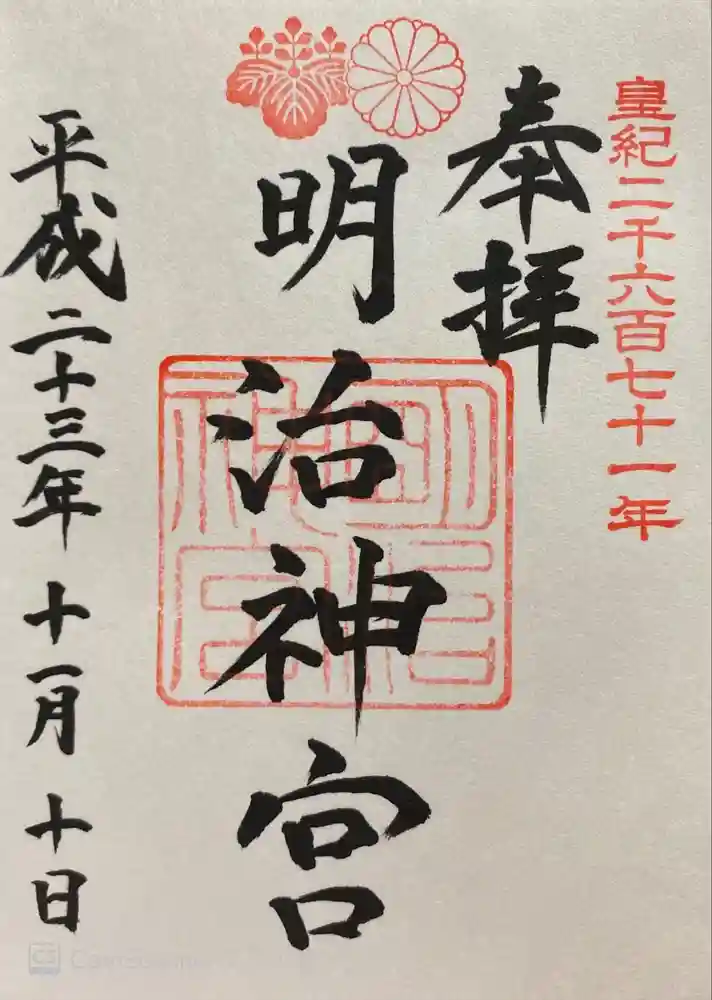 皇紀二千六百七十一年
奉拝
明治神宮
平成二十三年十一月十日
明治神宮
CS CamScanner